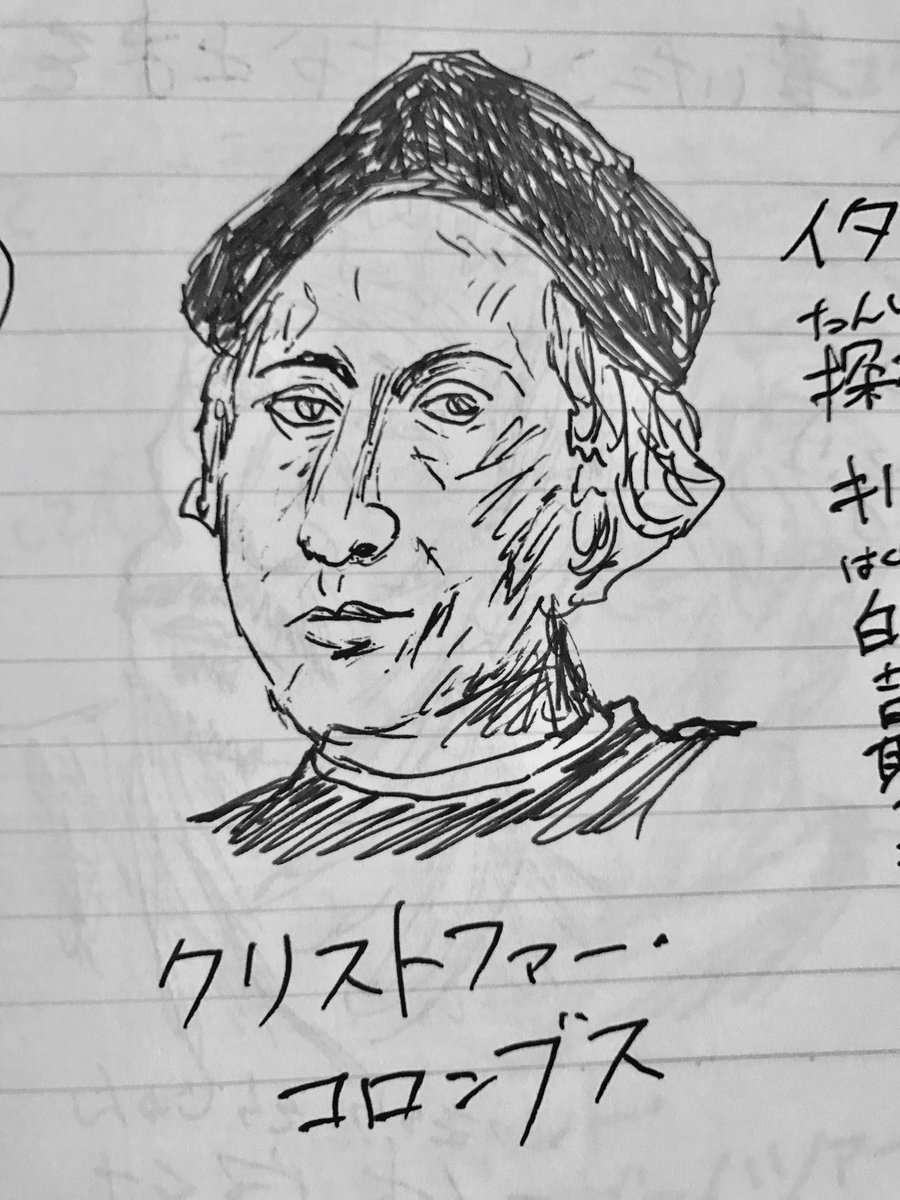 クリストファー・
コロンブス
イタ
たんし
探
キリ
はく
白